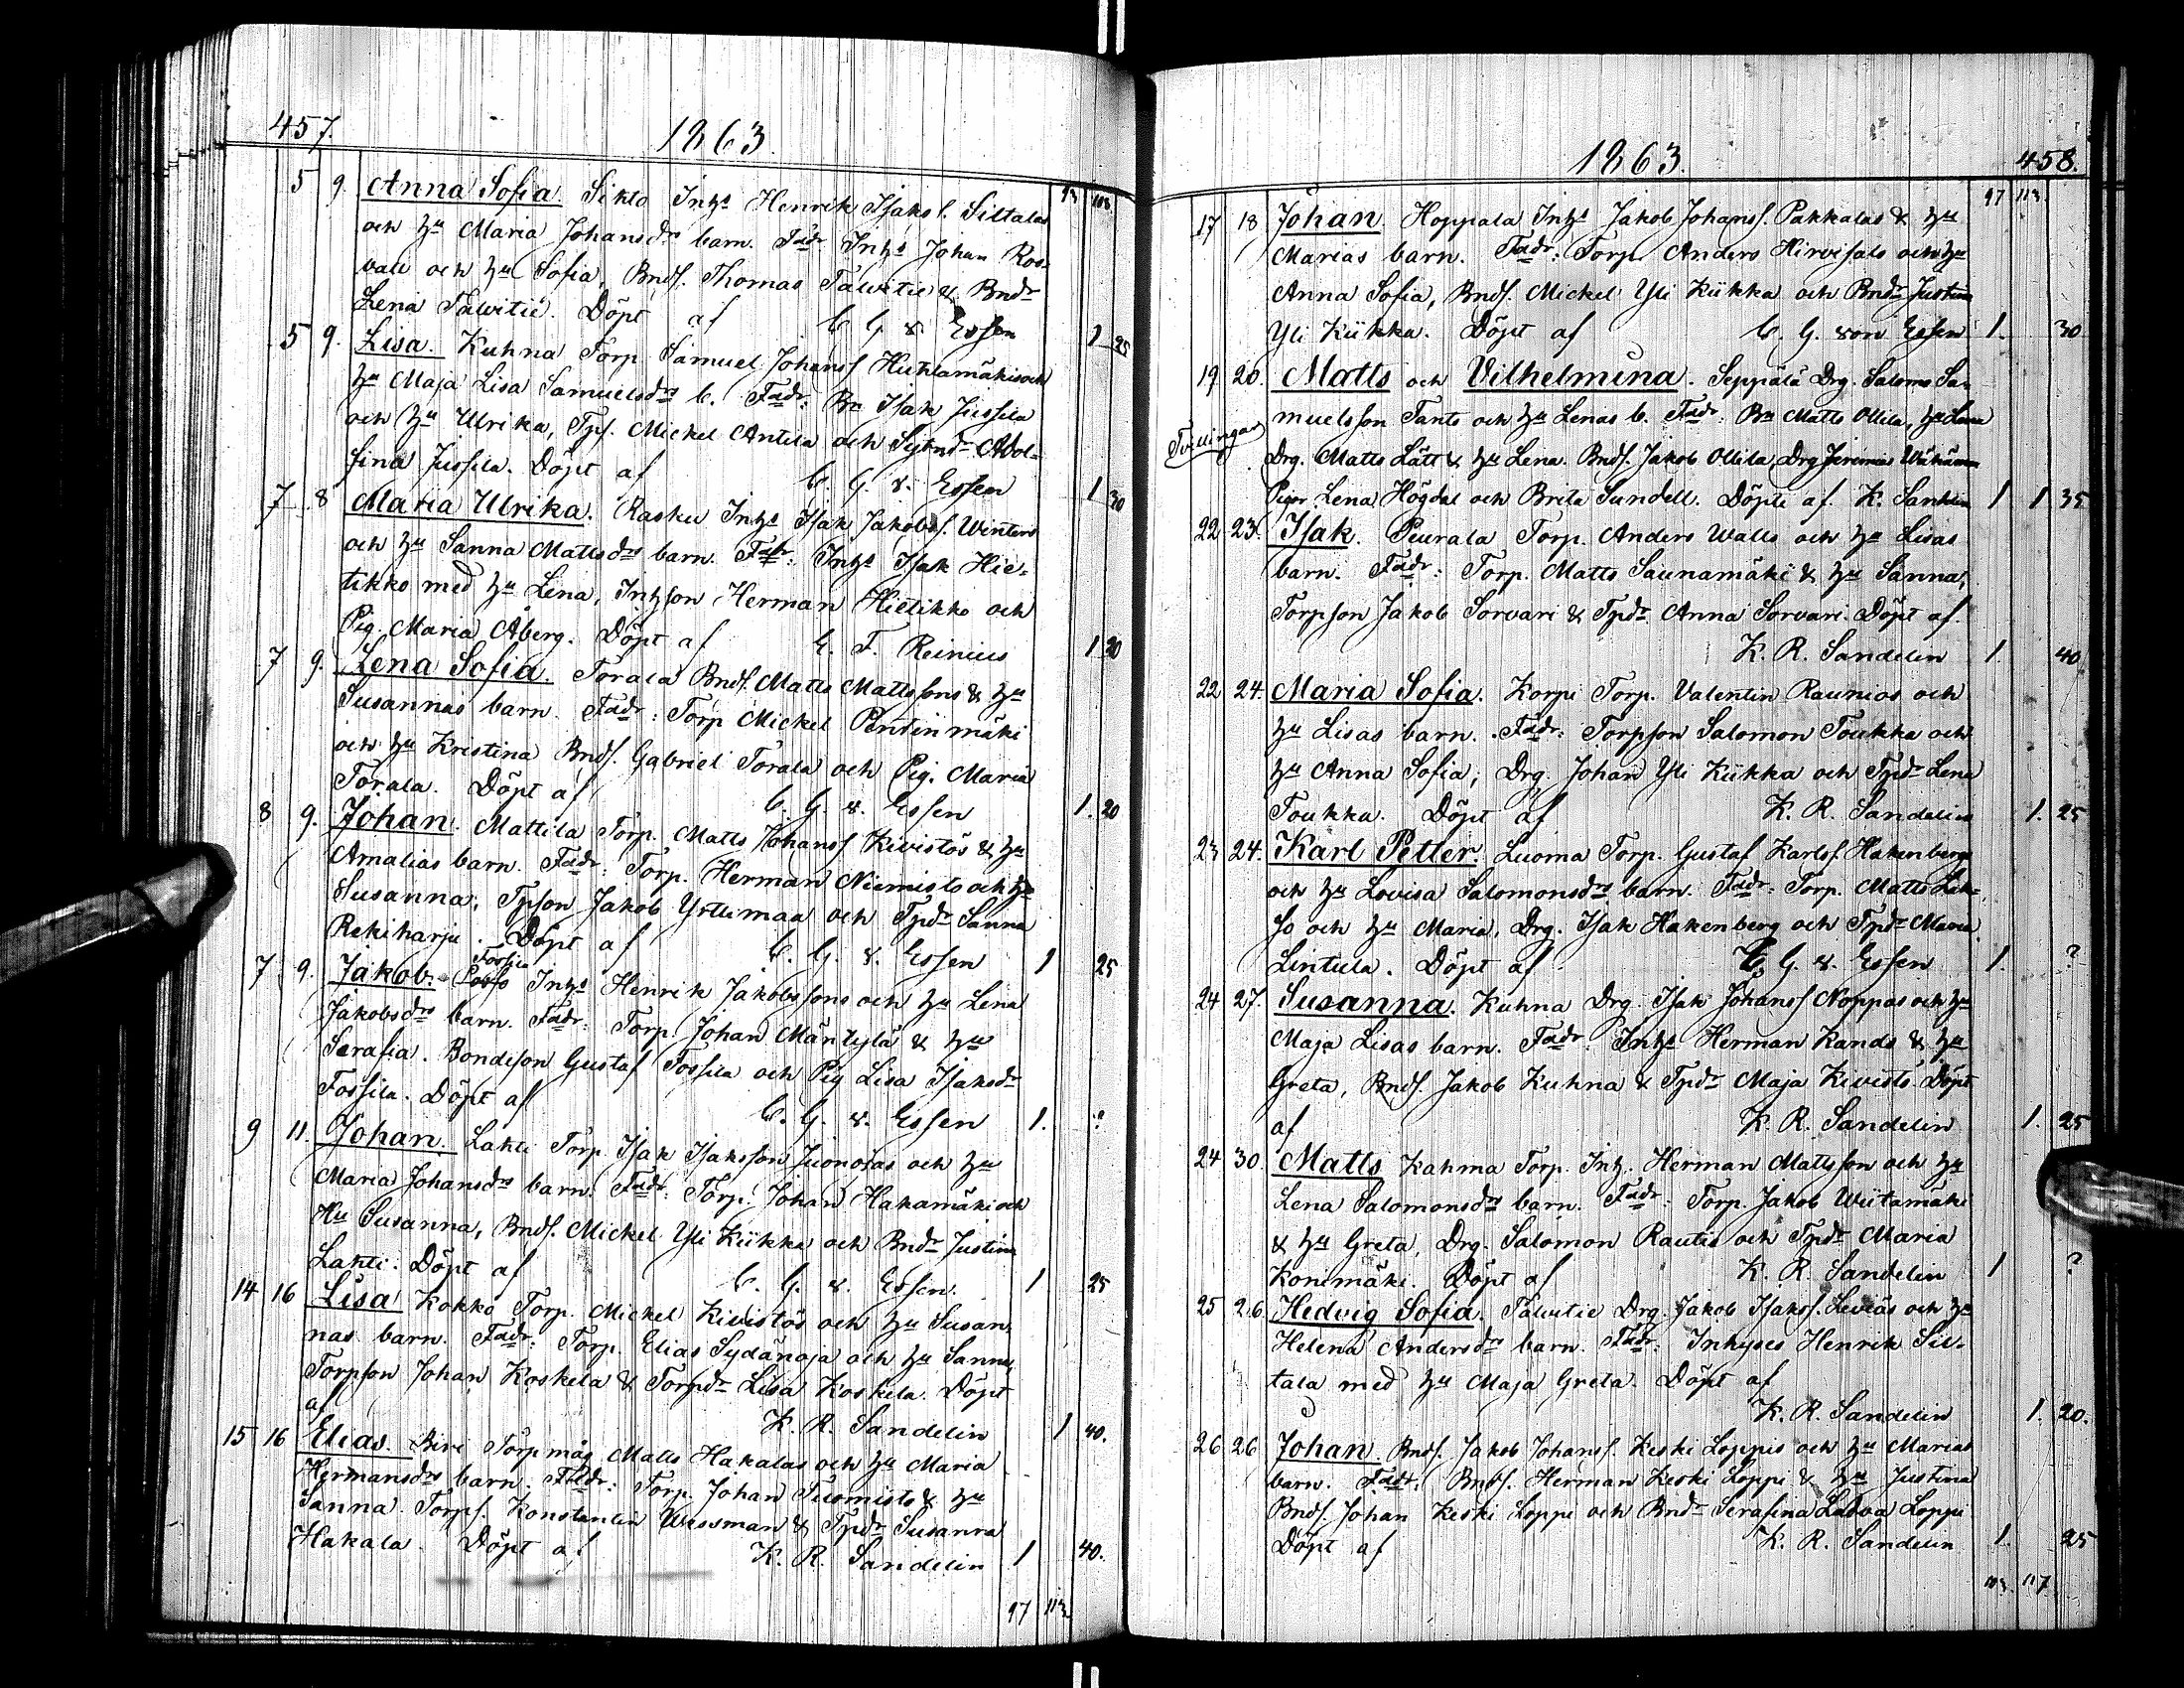 457. 1863.
93 108
5 9. Anna Sofia. Siklo Inhs Henrik Isaks f. Siltalas
och hu Maria Johansdrs barn. Fadr. Inhs Johan Ros-
vall och hu Sofia, Bndf. Thomas Talvitie & Bndr
Lena Talvitie. Döpt af C. G. v. Essen 1 25
5 9. Lisa. Kuhna Torp. Samuel Johansf Huhtamäkis och
hu Maja Lisa Samuelsdrs b. Fadr: Bn Isak Jussila
och hu Ulrika, Tpf. Mickel Antila och Sytndr Adol-
fina Jussila. Döpt af C. G. v. Essen 1 30
7 8 Maria Ulrika. Rasku Inhs Isak Jakobsf. Winters
och hu Sanna Mattsdrs barn. Fadr: Inhs Isak Hie-
tikko med hu Lena, Inhson Herman Hietikko och
Pig. Maria Åberg. Döpt af E. F. Reinius 1 20
7 9. Lena Sofia. Torala Bndf. Matts Mattssons & hu
Susannas barn. Fadr: Torp Mickel Pentinmäki
och hu Kristina Bndf. Gabriel Torala och Pig. Maria
Torala. Döpt af C. G. v. Essen 1. 20
8 9. Johan. Mattila Torp. Matts Johansf Kivistös & hu
Amalias barn. Fadr: Torp. Herman Niemisto och hu
Susanna, Tpson Jakob Yrttimaa och Tpdr Sanna
Rekiharju. Döpt af C. G. v. Essen 1 25
Fossila
7 9. Jakob. Inhs Henrik Jakobssons och hu Lena
Jakobsdrs barn. Fadr: Torp. Johan Mäntylä & hu
Serafia. Bondeson Gustaf Fossila och Pig Lisa Isaksdr
Fossila. Döpt af C. G. v. Essen 1. ?
9 11. Johan. Lahti Torp. Isak Isaksson Juonolas och hu
Maria Johansdrs barn. Fadr: Torp. Johan Hakamäki och
Hu Susanna, Bndf. Mickel Yli Kiikka och Bndr Justina
Lahti. Döpt af C. G. v. Essen. 1 25
14 16 Lisa Kokko Torp. Mickel Kivistös och hu Susan-
nas barn. Fadr: Torp. Elias Sydänoja och hu Sanna,
Torpson Johan Koskela & Torpdr Lisa Koskela. Döpt
af K. R. Sandelin 1 40.
15 16 Elias. Torpmåg Matts Hakalas och hu Maria
Hermansdrs barn. Fadr: Torp. Johan Tuomisto & hu
Sanna Torpf. Konstantin Wessman & Tpdr Susanna
Hakala. Döpt af K. R. Sandelin 1 40.
97 113
1863. 458.
97 113
17 18 Johan Hoppala Inhs Jakob Johansf. Pakkalas & hu
Marias barn. Fadr: Torp. Anders Hirvisalo och hu
Anna Sofia, Bndf. Mickel Yli Kiikka och Bndr Justina
Yli Kiikka. Döpt af C. G. von Essen 1. 30
19 20. Matts och Vilhelmina. Seppälä Drg. Saloms Sa-
muelsson Tants och hu Lenas b. Fadr: Bn Matts Ollila, hu Lena
Tvillingar
Drg. Matts Lätt & hu Lena. Bndf. Jakob Ollila, Drg Jeremias
Pigor Lena Högdal och Brita Sundell. Döpte af K. Sandelin 1 1 35
22 23. Isak. Peurala Torp. Anders Walls och hu Lisas
barn. Fadr: Torp. Matts Saunamäki & hu Sanna,
Torpson Jakob Sorvari & Tpdr Anna Sorvari. Döpt af.
K. R. Sandelin 1. 40
22 24. Maria Sofia. Korpi Torp. Valentin Raunios och
hu Lisas barn. Fadr: Torpson Salomon Toukka och
hu Anna Sofia, Drg. Johan Yli Kiikka och Tpdr Lena
Toukka. Döpt af K. R. Sandelin 1. 25
23 24. Karl Petter. Luoma Torp. Gustaf Karlsf. Hakenbergs
och hu Lovisa Salomonsdrs barn. Fadr: Torp. Matts Lak-
so och hu Maria, Drg. Isak Hakenberg och Tpdr Maria
Lintula. Döpt af C. G. v. Essen 1. ?
24 27. Susanna. Kuhna Drg. Isak Johansf Noppas och hu
Maja Lisas barn. Fadr: Inhs Herman Kando & hu
Greta, Bndf. Jakob Kuhna & Tpdr Maja Kivistö. Döpt
af K. R. Sandelin 1. 25
24 30. Matts Kahma Torp. Inh. Herman Mattsson och hu
Lena Salomonsdrs barn. Fadr: Torp. Jakob Wiitamäki
& hu Greta, Drg. Salomon Rautio och Tpdr Maria
Konimäki. Döpt af K. R. Sandelin 1 ?
25 26. Hedvig Sofia. Talvitie Drg. Jakob Isaksf. Leviäs och hu
Helena Andersdrs barn. Fadr: Inhyses Henrik Sil-
tala med hu Maja Greta. Döpt af
K. R. Sandelin 1. 20.
26 26 Johan. Bndf. Jakob Johansf. Keski Loppis och hu Marias
barn. Fadr: Bndf. Herman Keski Loppi & hu Justina
Bndf. Johan Keski Loppi och Bndr Serafina Latva Loppi
Döpt af K. R. Sandelin 1. 25
103 117